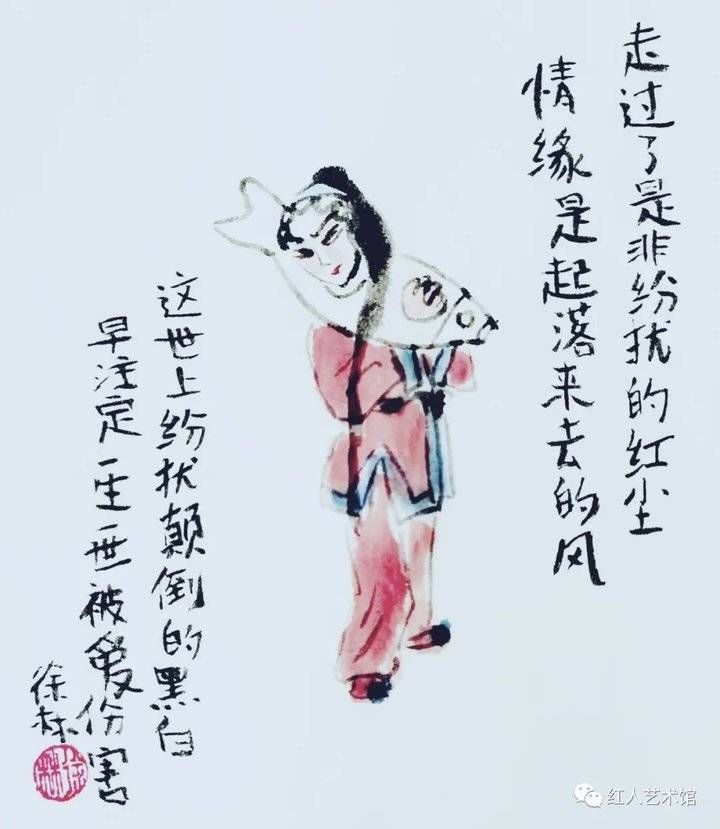 走过了是非纷扰的红尘
情缘是起落来去的风
这世上纷扰颠倒的黑白
早注定一生一世被爱伤害
徐林
红人艺术馆